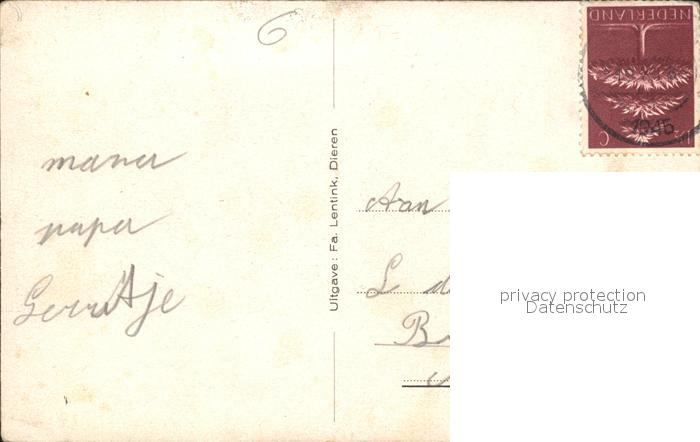 6
NEDERLAND
1945
C
mama
papa
Gerritje
Uitgave: Fa. Lentink, Dieren
Aan
L d
B
privacy protection
Datenschutz